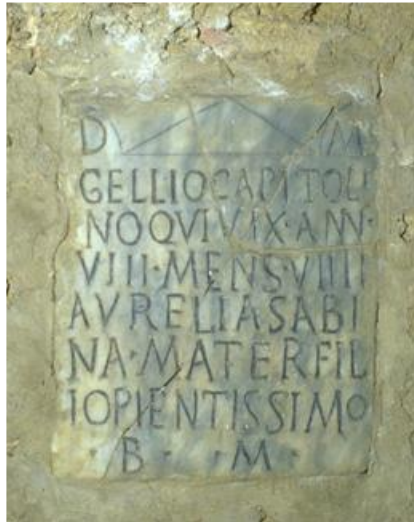 D M
GELLIO CAPITOLI
NO QVI VIX · ANN ·
VIII · MENS · VIIII
AVRELIA SABI
NA · MATER FIL
IO PIENTISSIMO
· B · · M ·